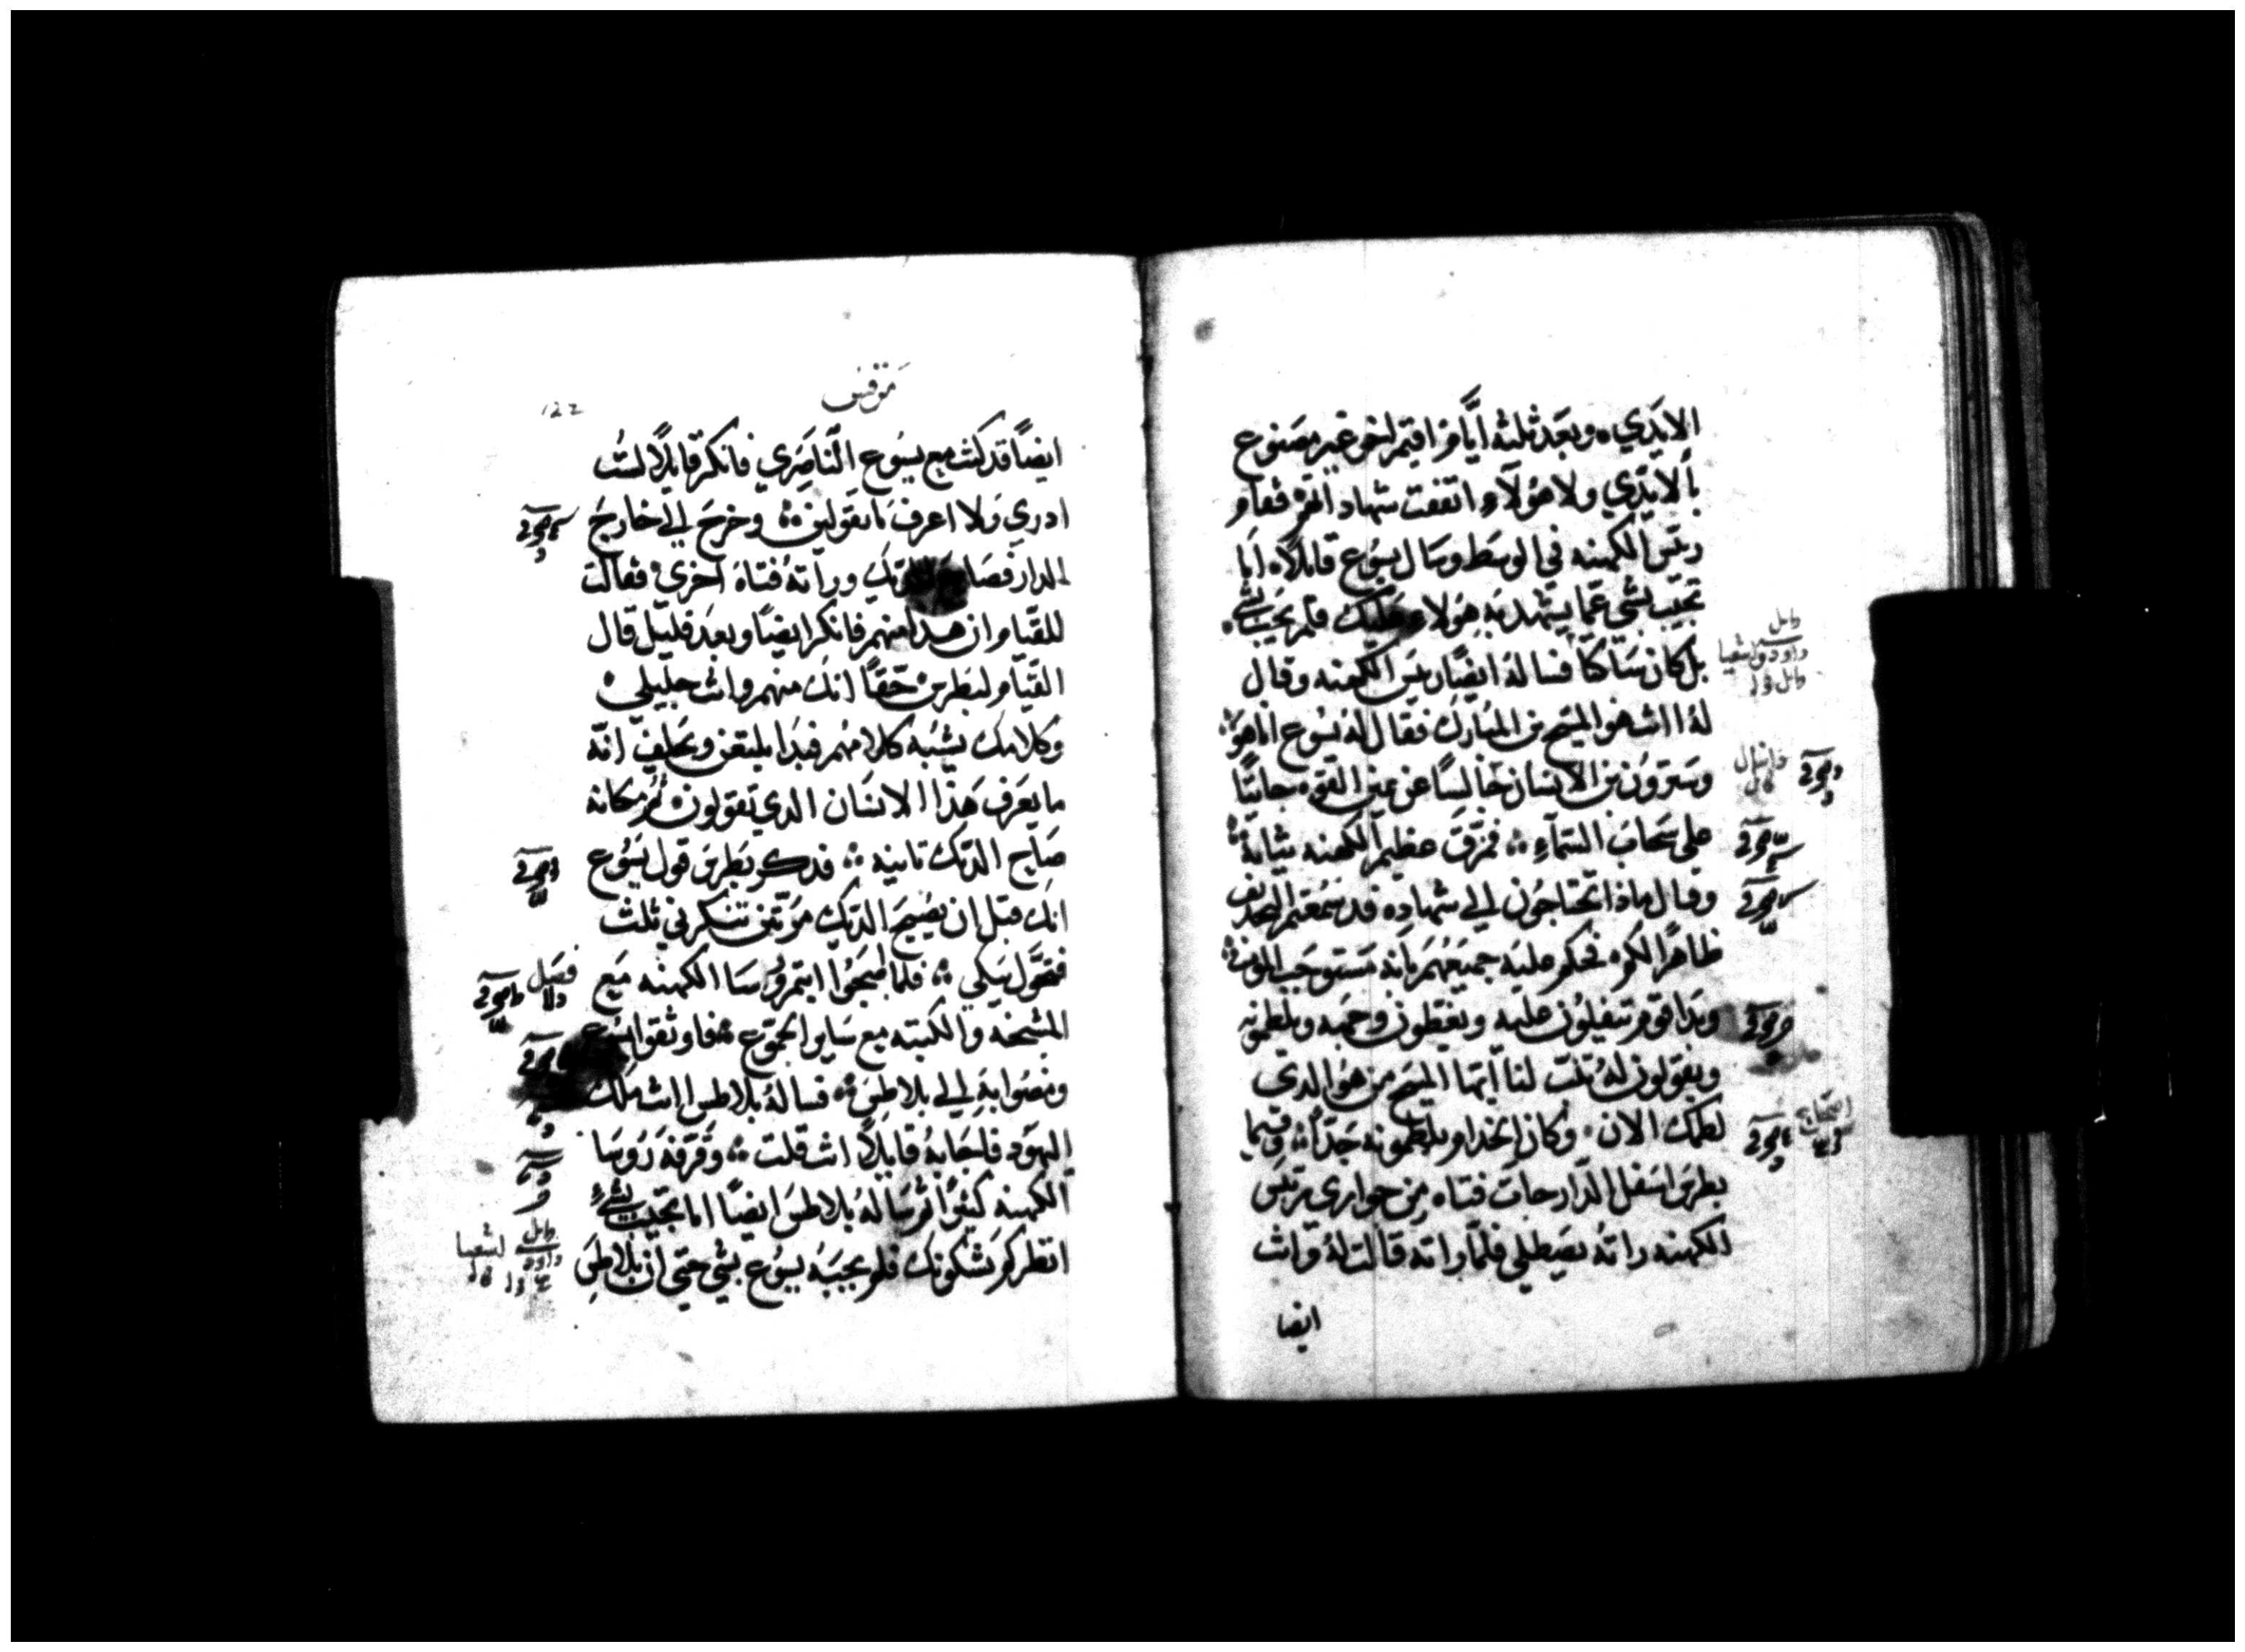 الايَدي ۰ وبعَد ثلثه ايَّام اقيم اخر غير مصَنوع
بالايدي ولا هولآء اتفقت شهاداتهم ۰ فقام
ريس الكهنه في الوسَط وسَال يسُوع قايلاً ۰ امَا
تجيب بشي عمّا يشهد به هولاء عليك فلم يجيب بشي ۰
بل كان سَاكتاً فسالهُ ايضًا ريسَ الكهنه وقال
لهُ اانت هو المسَيح بن المبَارك فقال لهُ يسُوع انا هو ۰
وسَترون بن الانسَان جَالسًا عن يمين القوه جاييًا
علي سَحاب السَمآء ۰ فمزّق عظيم الكهنه ثيابهُ ۰
وقال ماذا تحتاجُون الي شهاده قد سَمعتم التجديف
ظاهرًا لكم ۰ فحكم عليَه جميَعهُم بَانه مستوجَب الموت ۰
وبَدا قوم يتفلُون عليه ويغطون وجهه ويلطمونه
ويقولون لهُ تنبّ لنا ايّها المسَيح من هوُ الدي
لطمك الان ۰ وكان الخدام يلطمونه جَدًّا ۰ وفيما
بطرسَ اسَفل الدَار جات فتاه من جواري ريسَ
الكهنه راتهُ يصَطلي فلمّا راته قالت لهُ وانت
ايضا
دانيال
مَرقسُ
122
ايضًا قد كنت مع يسُوع النّاصَري فانكر قايلاً لسَتُ
ادري وَلا اعرف مَا تقولين ۰ وخرجَ الي خارجَ
الدار فصَاح الديك وراتهُ فتاهَ اخري ۰ فقالت
للقيّام ان هدا منهم فانكر ايضًا وبعدَ قليل قال
القيَام لبطرسَ ۰ حَقًا انك منهم وانت جليلي ۰
وكلامك يشبُه كلامهُم فبدَا يلتعن ويحلف انّه
ما يعرَف هَذا الانسَان الدي تقولون ۰ ثُم مكانه
صَاح الديَك ثانيه ۰ فدكر بطرسَ قول يسَوُع
انك قبل ان يصَيحَ الديك مرّتين تنكرني ثلث
فتحوّل يبَكي ۰ فلما اصبَحُوا ايتمر روسَا الكهنه مَع
المشيخه والكتبه مع سَاير الجموع ۰ فاوثقوا يسُوع
ومضَوا بهِ الي بلاطسَ ۰ فسالهُ بلاطس اانت مَلك
اليهوَد فاجَابهُ قايلاً انت قلت ۰ وقرفهَ رَوسَا
الكهنه كثيرًا ثم سَالهُ بلاطسَ ايضًا اما تجيب بشي
انظر كم يَشكونك فلم يجيبَهُ يسُوع بشي حتي ان بلاطسَ
فصَل